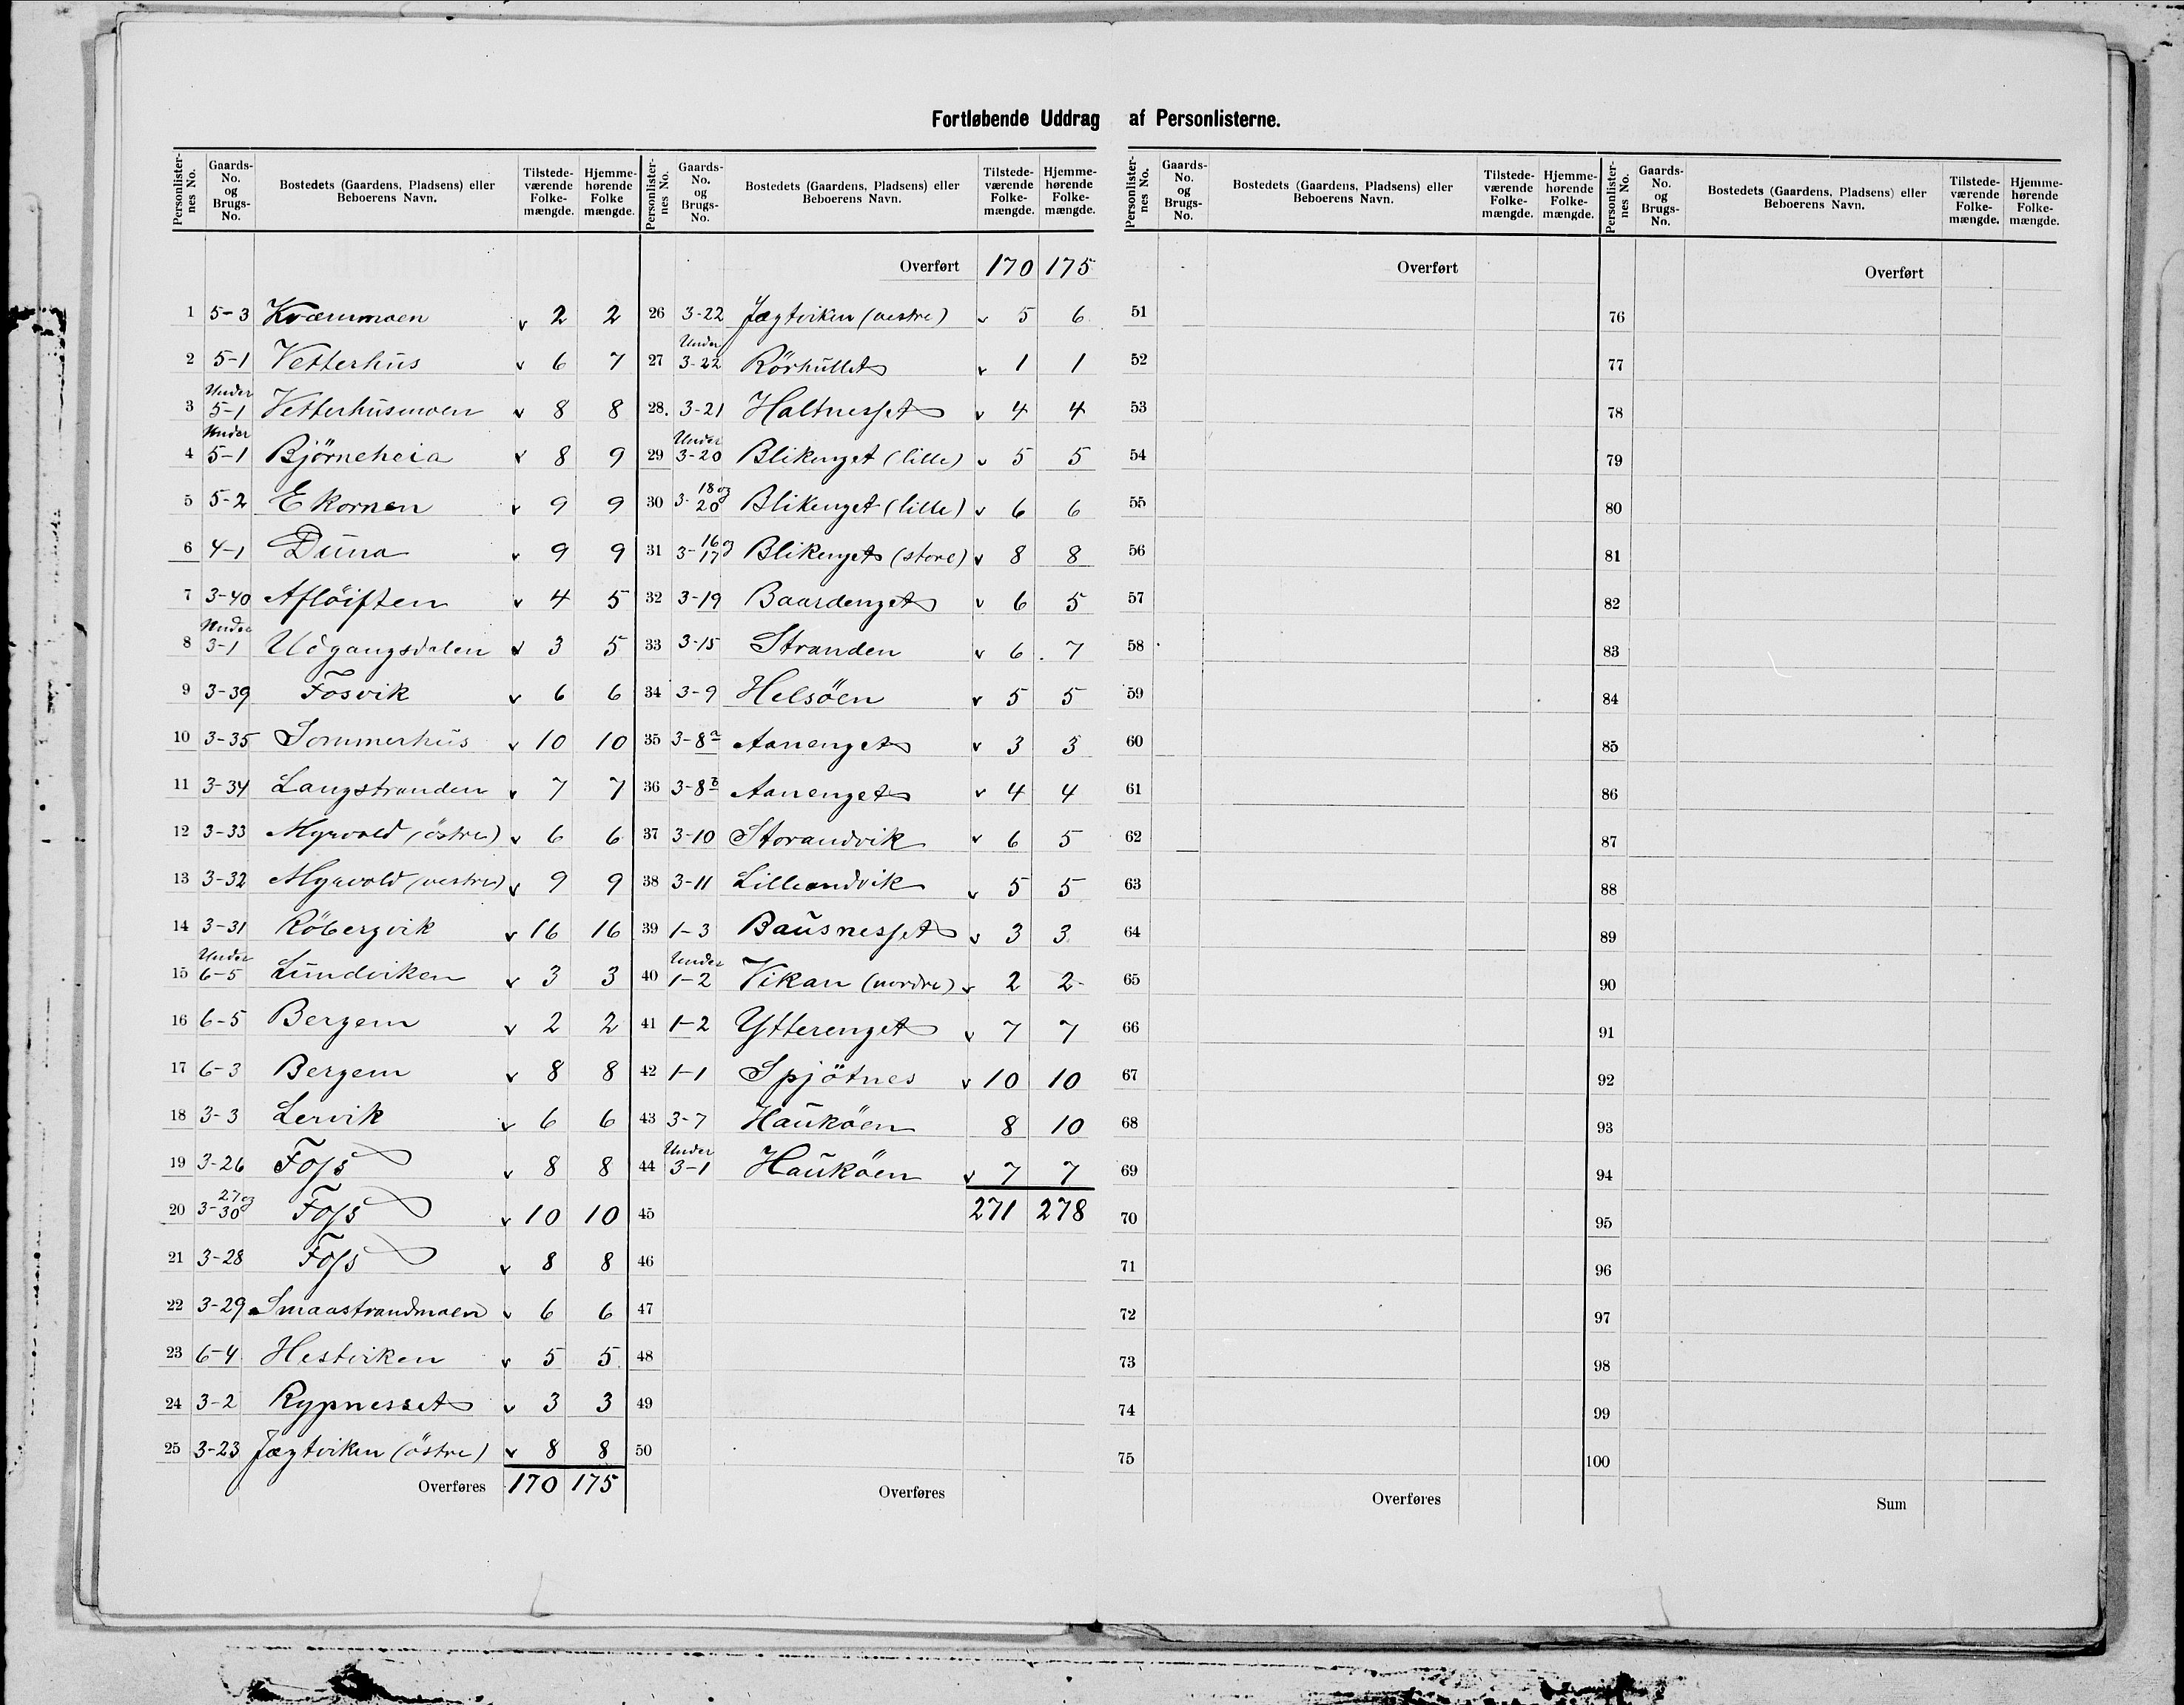 Fortløbende Uddrag af Personlisterne.
Personlister-nes No. | Gaards-No. og Brugs-No. | Bostedets (Gaardens, Pladsens) eller Beboerens Navn. | Tilstede-værende Folke-mængde. | Hjemme-hørende Folke mængde.
1 5-3 Kværnmoen v 2 2
2 5-1 Vetterhus v 6 7
3 Under 5-1 Vetterhusmoen v 8 8
4 Under 5-1 Björneheia v 8 9
5 5-2 Ekornen v 9 9
6 4-1 Duna v 9 9
7 3-40 Aflöiften v 4 5
8 Under 3-1 Udgangsdalen v 3 5
9 3-39 Fosvik v 6 6
10 3-35 Sommerhus v 10 10
11 3-34 Langstranden v 7 7
12 3-33 Myrvold (östre) v 6 6
13 3-32 Myrvold (vestre) v 9 9
14 3-31 Röbergvik v 16 16
15 Under 6-5 Lundviken v 3 3
16 6-5 Bergem v 2 2
17 6-3 Bergem v 8 8
18 3-3 Lervik v 6 6
19 3-26 Foss v 8 8
20 3-27 og 30 Foss v 10 10
21 3-28 Foss v 8 8
22 3-29 Smaastrandmoen v 6 6
23 6-4 Hestviken v 5 5
24 3-2 Rypnesset v 3 3
25 3-23 Jægtviken (östre) v 8 8
Overføres 170 175
Personlister-nes No. | Gaards-No. og Brugs-No. | Bostedets (Gaardens, Pladsens) eller Beboerens Navn. | Tilstede-værende Folke-mængde. | Hjemme-hørende Folke-mængde.
Overført 170 175
26 3-22 Jægtviken (vestre) v 5 6
27 Under 3-22 Rörhullet v 1 1
28. 3-21 Haltnesset v 4 4
29 Under 3-20 Blikenget (lille) v 5 5
30 3-18 og 20 Blikenget (lille) v 6 6
31 3-16 og 17 Blikenget (store) v 8 8
32 3-19 Baardenget v 6 5
33 3-15 Stranden v 6 7
34 3-9 Helsöen v 5 5
35 3-8a Aanenget v 3 3
36 3-8b Aanenget v 4 4
37 3-10 Storandvik v 6 5
38 3-11 Lilleandvik v 5 5
39 1-3 Bausnesset v 3 3
40 Under 1-2 Vikan (nordre) v 2 2
41 1-2 Ytterenget v 7 7
42 1-1 Spjötnes v 10 10
43 3-7 Hauköen 8 10
44 Under 3-1 Hauköen v 7 7
45 271 278
46
47
48
49
50
Overføres
Personlister-nes No. | Gaards-No. og Brugs-No. | Bostedets (Gaardens, Pladsens) eller Beboerens Navn. | Tilstede-værende Folke-mængde. | Hjemme-hørende Folke-mængde.
Overført
51
52
53
54
55
56
57
58
59
60
61
62
63
64
65
66
67
68
69
70
71
72
73
74
75
Overføres
Personlister-nes No. | Gaards-No. og Brugs-No. | Bostedets (Gaardens, Pladsens) eller Beboerens Navn. | Tilstede-værende Folke-mængde. | Hjemme-hørende Folke-mængde.
Overført
76
77
78
79
80
81
82
83
84
85
86
87
88
89
90
91
92
93
94
95
96
97
98
99
100
Sum